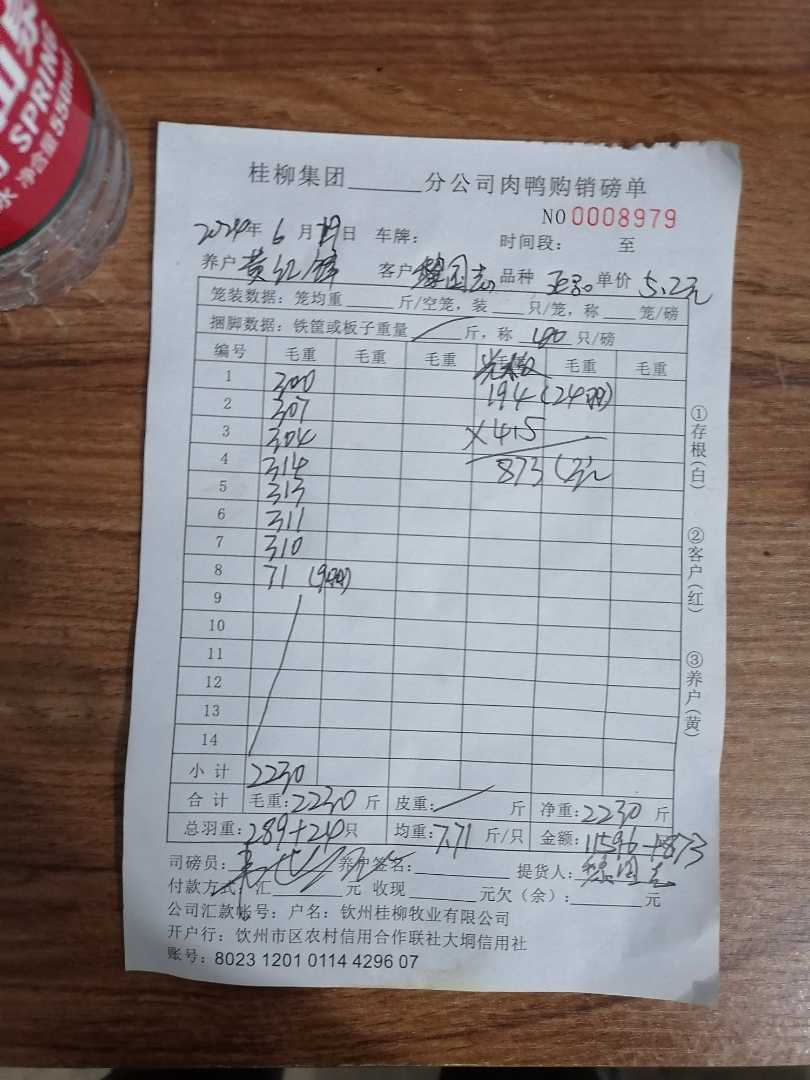 泉
SPRING
水 净含量550ml
桂柳集团______分公司肉鸭购销磅单
NO 0008979
2024年 6 月 19日 车牌： 时间段： 至
养户 黄红锋 客户 国志 品种 单价 5.2元
笼装数据：笼均重 斤/空笼，装 只/笼，称 笼/磅
捆脚数据：铁筐或板子重量 / 斤，称 40 只/磅
编号 毛重 毛重 毛重 毛重 毛重 毛重
1 300 194 (24羽)
2 307 × 4.5
3 304 873 (元
4 314
5 313
6 311
7 310
8 71 (9羽)
9
10
11
12
13
14
小计 2230
合计 毛重：2230 斤 皮重：/ 斤 净重：2230 斤
总羽重：289+24只 均重：7.71 斤/只 金额：11596+873
司磅员： 养户签名： 提货人：国志
付款方式：汇 元 收现 元欠（余）： 元
公司汇款帐号：户名：钦州桂柳牧业有限公司
开户行：钦州市区农村信用合作联社大垌信用社
账号：8023 1201 0114 4296 07
①存根(白)
②客户(红)
③养户(黄)